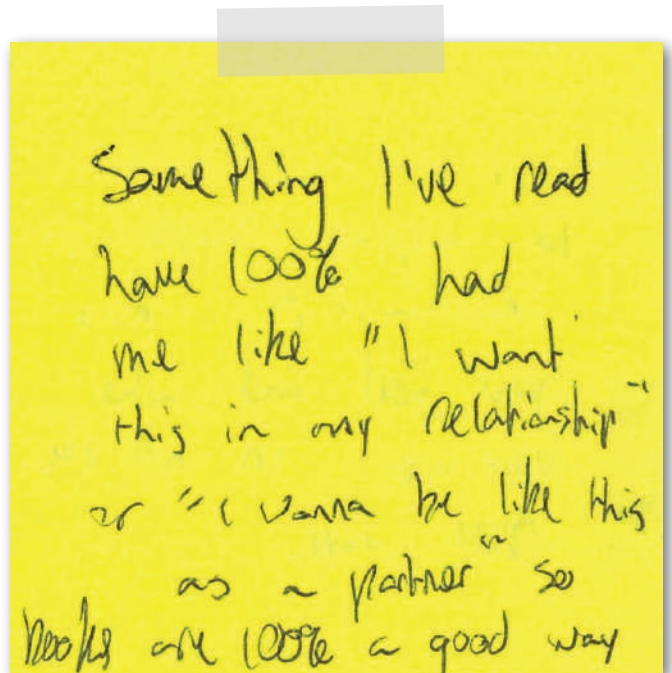 Something I've read
have 100% had
me like "I want
this in my relationship"
or "I wanna be like this
as a partner" so
books are 100% a good way